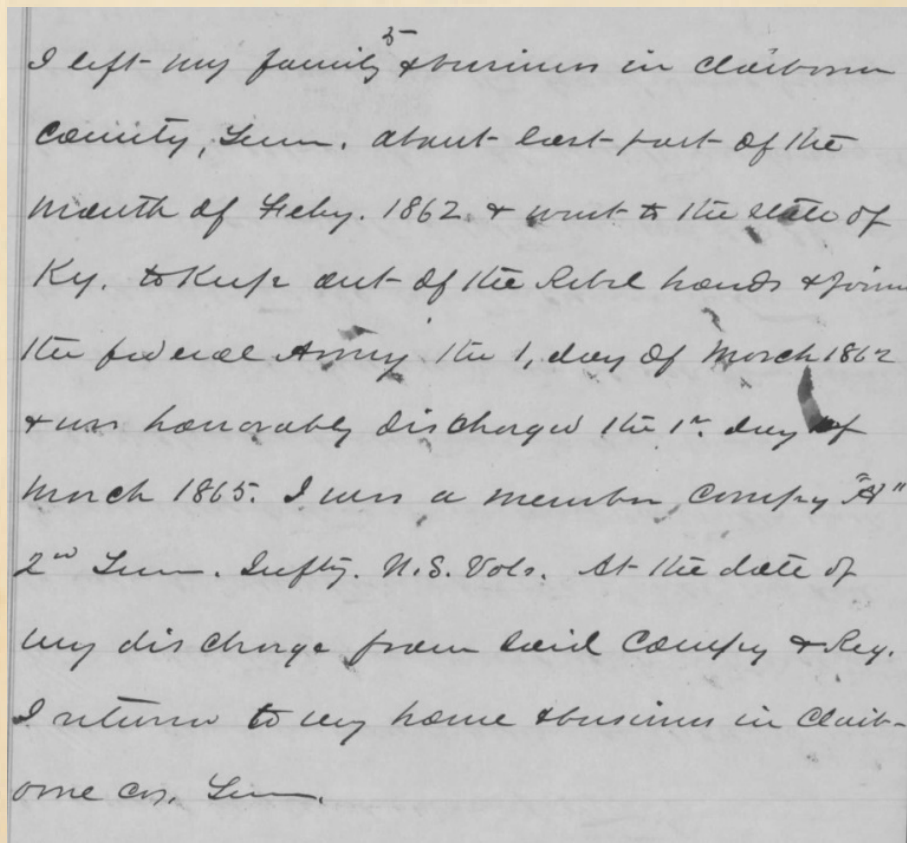 5
I left my family & business in Claiborne
County, Tenn. about last part of the
Month of Feby. 1862 & went to the state of
Ky. to Keep out of the Rebel hands & join
the federal Army the 1, day of March 1862
& was honorably discharged the 1st. day of
March 1865. I was a member Compy "H"
2nd Tenn. Infty. U.S. Vols. At the date of
my discharge from said Compy & Reg.
I return to my home & business in Claib-
orne co. Tenn.